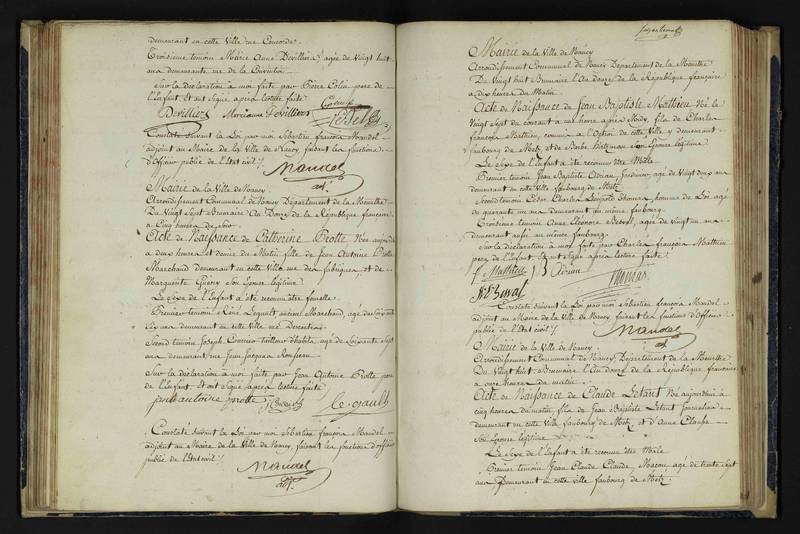 demeurant en cette Ville rue Concorde.
Troisieme temoin Marie Anne Devilliers, agée de Vingt huit
ans demeurante rue de la
Sur la déclaration à moi faite par Pierre Colin pere de
l'Enfant, et ont signé après lecture faite
Devilliers Marianne Devilliers
Constaté suivant la Loi par moi Sébastien françois Mandel
adjoint au Maire de la Ville de Nancy faisant les fonctions
d'officier public de l'état civil ./.
Mandel
adj.
Mairie de la Ville de Nancy.
Arrondissement Communal de Nancy Département de la Meurthe
Du Vingt sept Brumaire l'an Douze de la République francaise
à Cinq heures du soir
Acte de Naissance de Catherine Protte Née aujourd'hui
à deux heures et demie du Matin, fille de Jean Antoine Protte
Marchand demeurant en cette Ville rue des fabriques, et de
Marguerite son Epouse légitime.
Le Sexe de l'Enfant a été reconnu être femelle.
Premier temoin Jean Legault ancien Marchand, agé de soixante
dix ans demeurant en cette ville rue
Second temoin Joseph tailleur d'habits, agé de Soixante Sept
ans demeurant rue Jean Jacques Rousseau.
Sur la déclaration à moi faite par Jean Antoine Protte pere
de l'Enfant, et ont signé après lecture faite
jean antoine protte Legault
Constaté suivant la Loi par moi Sébastien françois Mandel
adjoint au Maire de la Ville de Nancy, faisant les fonctions d'officier
public de l'état civil ./.
Mandel
adj.
Mairie de la Ville de Nancy
Arrondissement Communal de Nancy Département de la Meurthe
Du Vingt huit Brumaire l'an Douze de la République francaise
à dix heures du Matin.
Acte de Naissance de Jean Baptiste Mathieu Né le
Vingt Sept du courant à une heure après Midy, fils de Charles
françois Mathieu, commis à l'Octroi de cette Ville y demeurant
faubourg de Metz, et de Barbe son Epouse légitime
Le Sexe de l'Enfant a été reconnu être Mâle
Premier temoin Jean Baptiste Adrian, agé de Vingt deux ans
demeurant en cette Ville faubourg de Metz
Second temoin Charles Léopold Thomas, homme de Loi, agé
de quarante un ans demeurant au même faubourg.
Troisieme temoin Anne Eléonore agée de Vingt un ans
demeurant aussi au même faubourg.
Sur la déclaration à moi faite par Charles françois Mathieu
pere de l'Enfant. Et ont signé après lecture faite
Mathieu J B Adrian
Thomas
Constaté suivant la Loi par moi Sébastien françois Mandel
adjoint au Maire de la Ville de Nancy, faisant les fonctions d'officier
public de l'état civil ./.
Mandel
adj.
Mairie de la Ville de Nancy.
Arrondissement Communal de Nancy Département de la Meurthe
Du Vingt huit Brumaire l'An douze de la République francaise
à onze heures du matin.
Acte de Naissance de Claude Letant Né aujourd'hui à
cinq heures du matin, fils de Jean Baptiste Letant
demeurant en cette Ville faubourg de Metz, et d'Anne
son Epouse légitime
Le Sexe de l'Enfant a été reconnu être Mâle
Premier temoin Jean Claude Claude, Maçon, agé de trente sept
ans demeurant en cette ville faubourg de Metz.